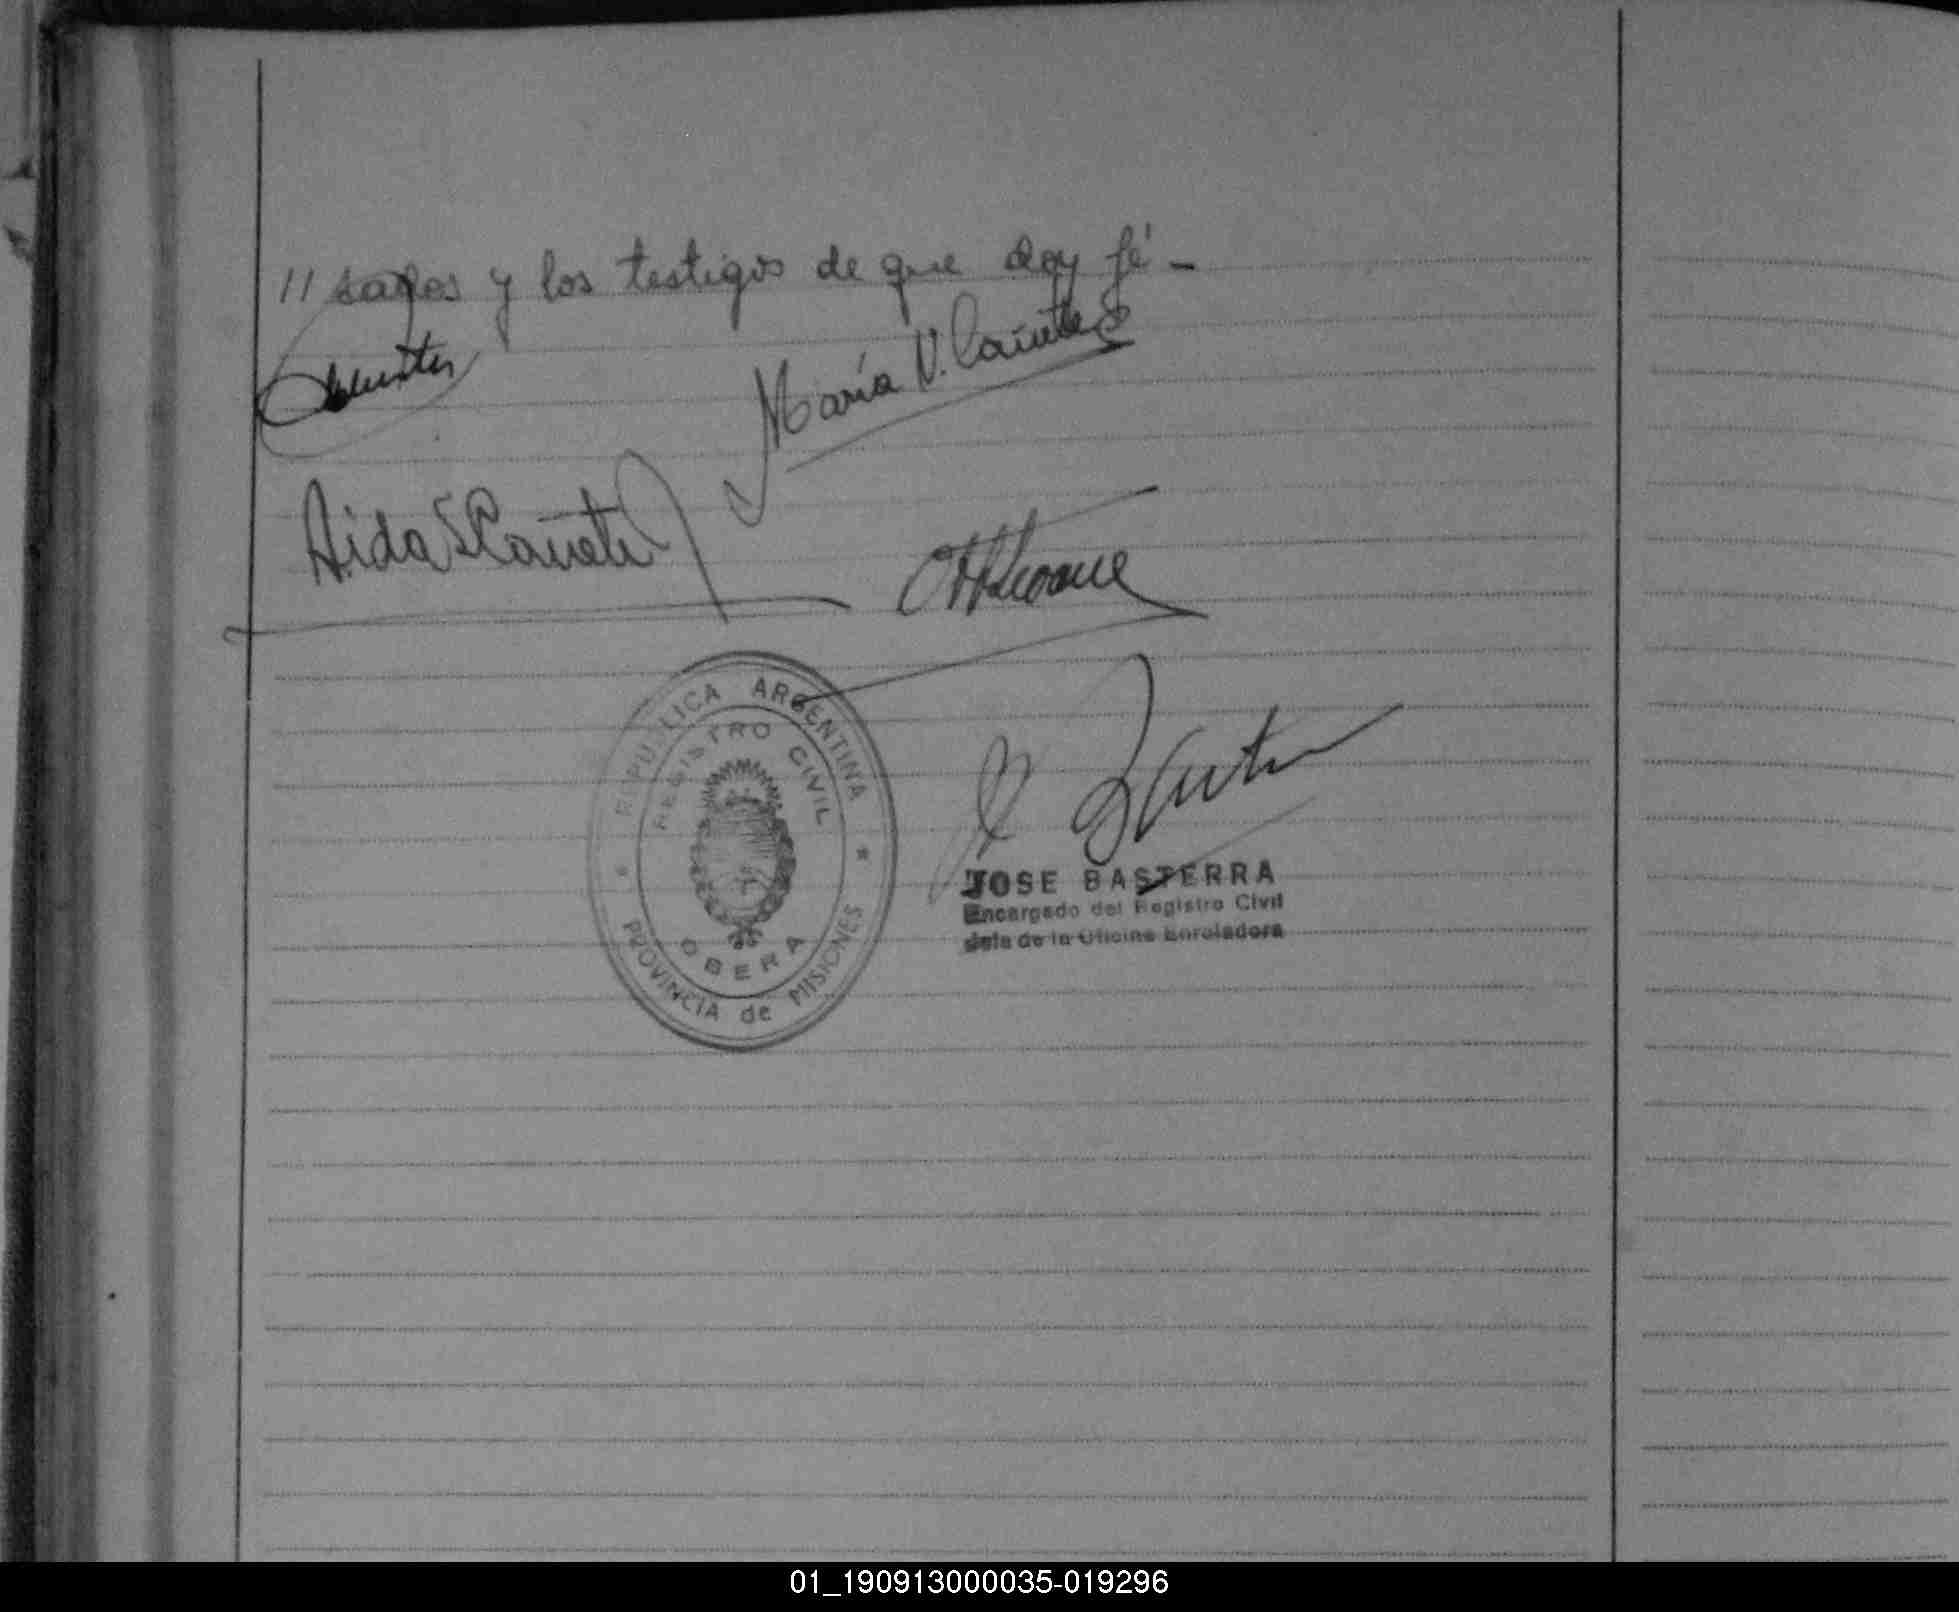 // sados y los testigos de que doy fé -
María V. Cañete
Aida S Cañete
REPUBLICA ARGENTINA
REGISTRO CIVIL
OBERA
PROVINCIA de MISIONES
JOSE BASTERRA
Encargado del Registro Civil
Jefe de la Oficina Enroladora
01_190913000035-019296